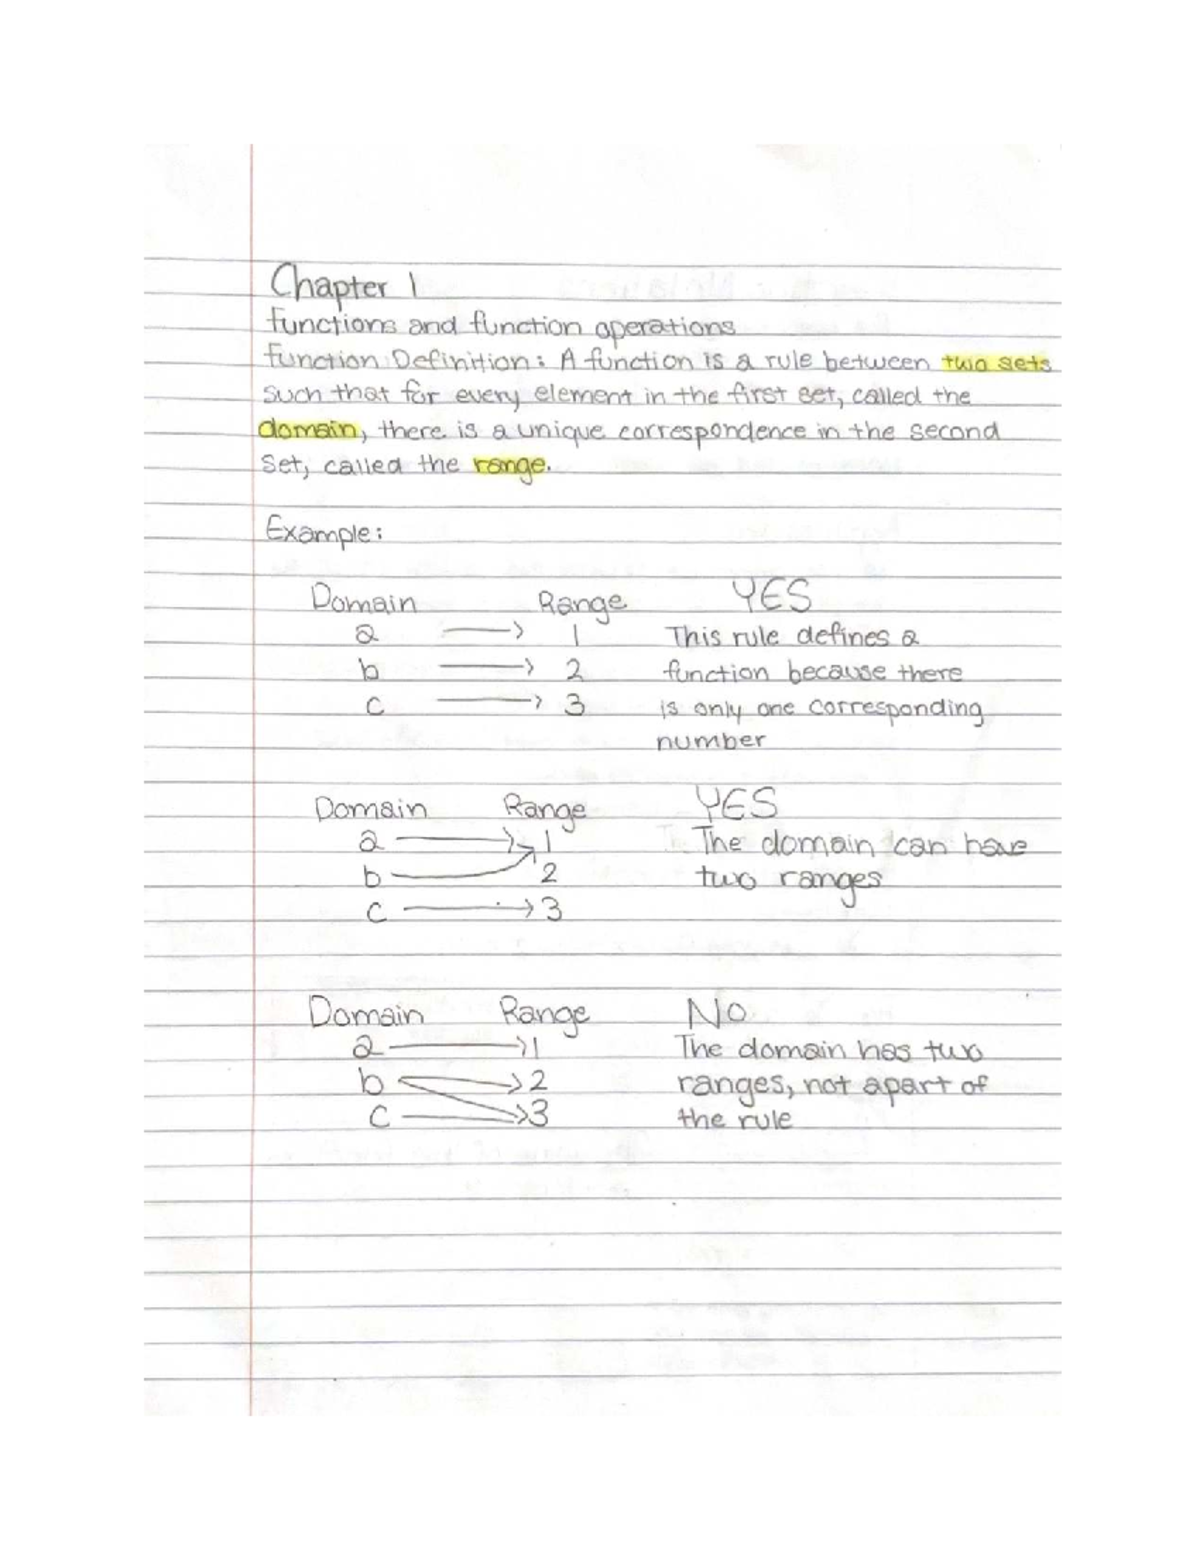 Chapter 1
functions and function operations
function Definition: A function is a rule between two sets
such that for every element in the first set, called the
domain, there is a unique correspondence in the second
set, called the range.
Example:
Domain Range YES
a → 1 This rule defines a
b → 2 function because there
c → 3 is only one corresponding
number
Domain Range YES
a → 1 The domain can have
b 2 two ranges
c → 3
Domain Range No
a → 1 The domain has two
b → 2 ranges, not apart of
c → 3 the rule